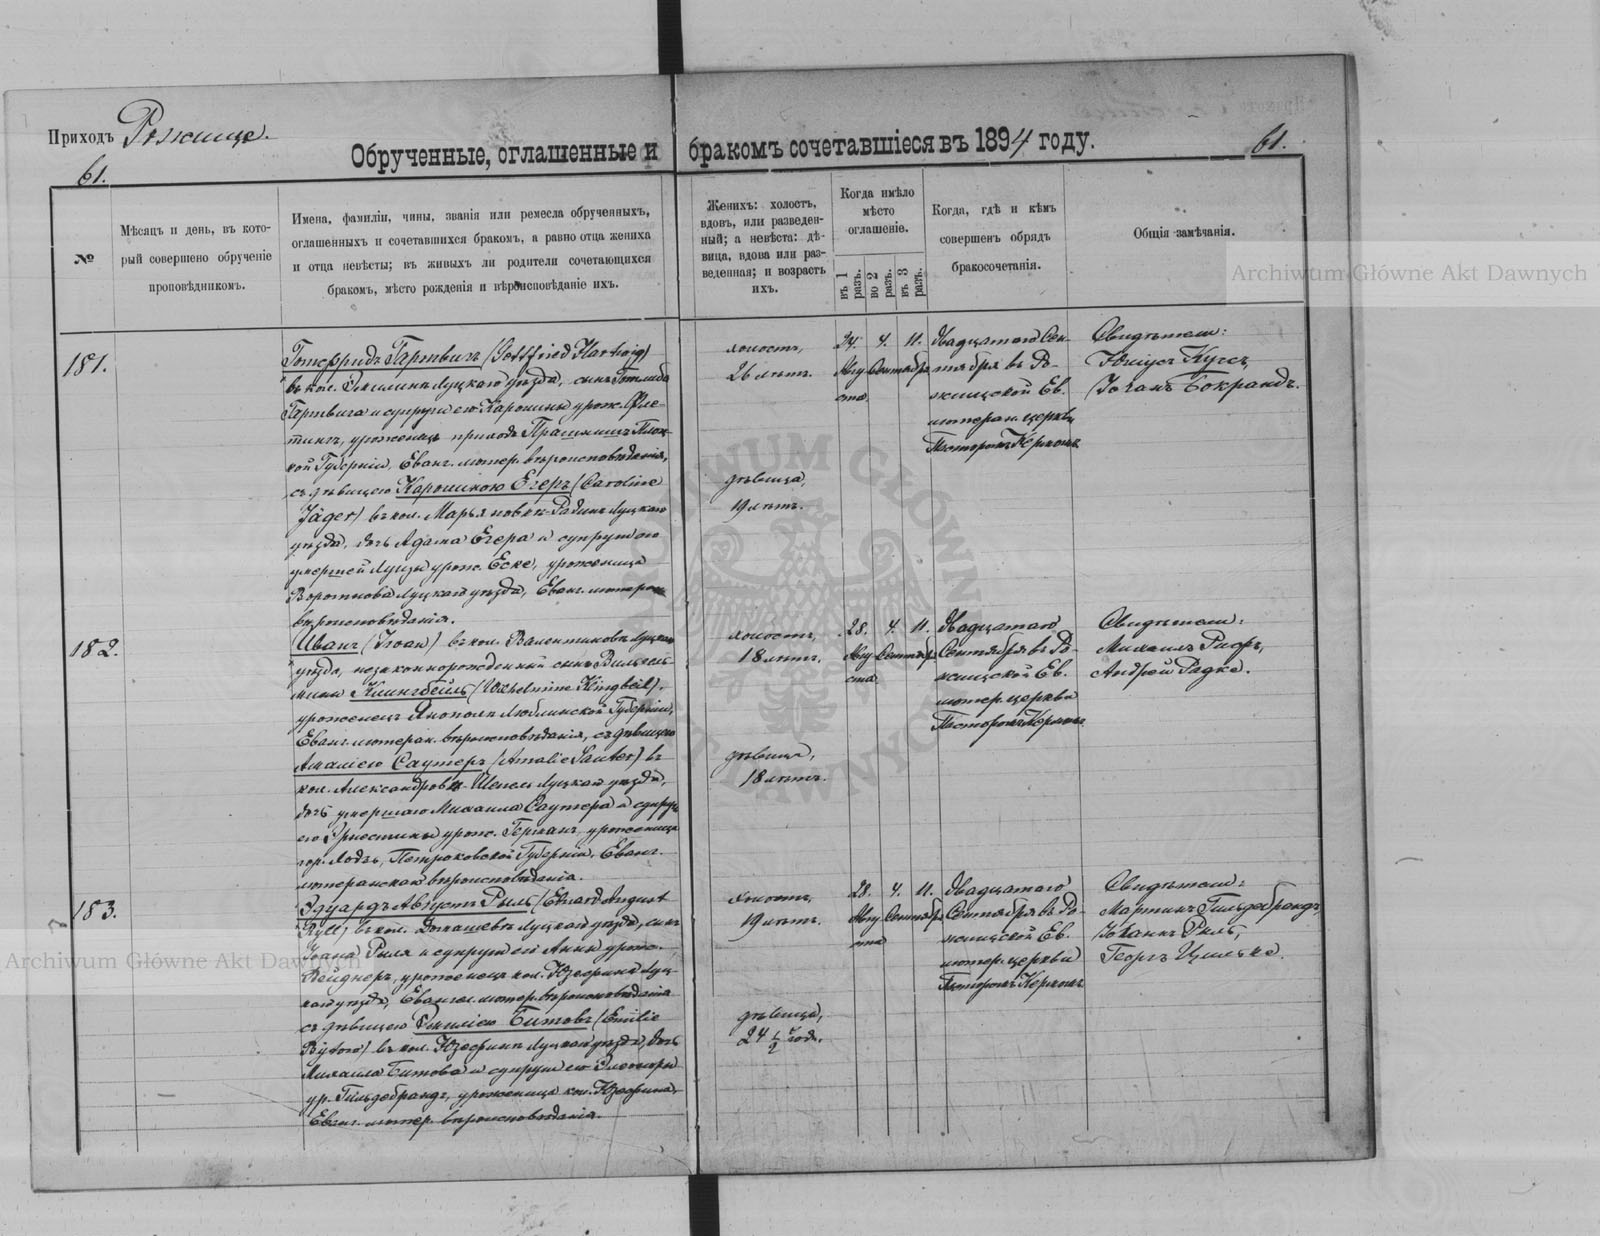 Приходъ Рожище.
61.
Обрученные, оглашенные и бракомъ сочетавшіеся въ 1894 году.
61.
№
Мѣсяцъ и день, въ кото-
рый совершено обрученіе
проповѣдникомъ.
Имена, фамиліи, чины, званія или ремесла обрученныхъ,
оглашенныхъ и сочетавшихся бракомъ, а равно отца жениха
и отца невѣсты; въ живыхъ ли родители сочетающихся
бракомъ, мѣсто рожденія и вѣроисповѣданіе ихъ.
Женихъ: холостъ,
вдовъ, или разведен-
ный; а невѣста: дѣ-
вица, вдова или раз-
веденная; и возрастъ
ихъ.
Когда имѣло
мѣсто
оглашеніе.
въ 1 разъ.
во 2 разъ.
въ 3 разъ.
Когда, гдѣ и кѣмъ
совершенъ обрядъ
бракосочетанія.
Общія замѣчанія.
Archiwum Główne Akt Dawnych
181.
Готфридъ Гартвигъ (Gottfried Hartwig)
въ кол. Луцкаго уѣзда, сынъ Готлиба
Гартвига и супруги его Каролины урож.
уроженецъ приходъ Прасныш Плоц-
кой Губерніи, Еванг. лютер. вѣроисповѣданія,
съ дѣвицею Каролиною Егеръ (Caroline
Jäger) въ кол. Марьяновка Луцкаго
уѣзда, дочь Адама Егера и супруги его
умершей Луизы урож. Еске, уроженица
Воротнова Луцкаго уѣзда, Еванг. лютеран.
вѣроисповѣданія.
холостъ,
26 лѣтъ.
дѣвица,
19 лѣтъ.
24. 4. 11.
Авгу Сентября
ста
двадцатаго Сен-
тября въ Ро-
жищской Ев.
лютеран. церкви
Пасторомъ Керномъ
Свидѣтели:
Юліусъ Кусъ,
Іоганъ Бокрандъ.
182.
Иванъ (Iwan) въ кол. Валентиновъ Луцкаго
уѣзда, незаконнорожденный сынъ Вильгель-
мины Клингбейль (Wilhelmine Klingbeil),
уроженецъ Янополя Люблинской Губерніи,
Еванг. лютеран. вѣроисповѣданія, съ дѣвицею
Амаліею Саутеръ (Amalie Sauter) въ
кол. Александровка-Шепель Луцкаго уѣзда,
дочь умершаго Михаила Саутера и супруги
его Эрнестины урож. Германъ, уроженица
гор. Лодзь, Петроковской Губерніи, Еванг.
лютеранская вѣроисповѣданія.
холостъ,
18 лѣтъ.
дѣвица,
18 лѣтъ.
28. 4. 11.
Авгу Сентября
ста
двадцатаго
Сентября въ Ро-
жищской Ев.
лютер. церкви
Пасторомъ Керномъ
Свидѣтели:
Михаилъ Риръ,
Андрей Радке.
183.
Эдуардъ Августъ Рылъ (Eduard August
Ryll) въ кол. Домашевъ Луцкаго уѣзда, сынъ
Іоана Рыля и супруги его Анны урож.
Вейднеръ, уроженецъ кол. Юзефина Луц-
каго уѣзда, Евангел. лютер. вѣроисповѣданія
съ дѣвицею Эмиліею Битовъ (Emilie
Bytow) въ кол. Юзефинъ Луцкаго уѣзда, дочь
Михаила Битова и супруги его Элеоноры
ур. Гильдебрандъ, уроженица кол. Юзефина,
Еванг. лютер. вѣроисповѣданія.
холостъ,
19 лѣтъ.
дѣвица,
24 1/2 года.
28. 4. 11.
Авгу Сентября
ста
двадцатаго
Сентября въ Ро-
жищской Ев.
лютер. церкви
Пасторомъ Керномъ
Свидѣтели:
Мартинъ Гильдебрандъ,
Іоганъ Рилъ,
Георгъ Цильке.
Archiwum Główne Akt Dawnych
ARCHIWUM GŁÓWNE AKT DAWNYCH